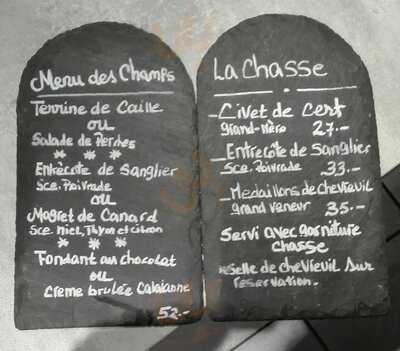 Menu des Champs
Terrine de Caille
ou
Salade de Perches
* * *
Entrecôte de Sanglier
Sce. Poivrade
ou
Magret de Canard
Sce. Miel, Thym et citron
* * *
Fondant au chocolat
ou
Creme brulée Catalanne
52.-
La Chasse
- Civet de Cerf
Grand-Mère 27.-
- Entrecôte de Sanglier
Sce. Poivrade 33.-
- Medaillons de chevreuil
grand veneur 35.-
Servi avec garniture
chasse
selle de chevreuil sur
reservation.